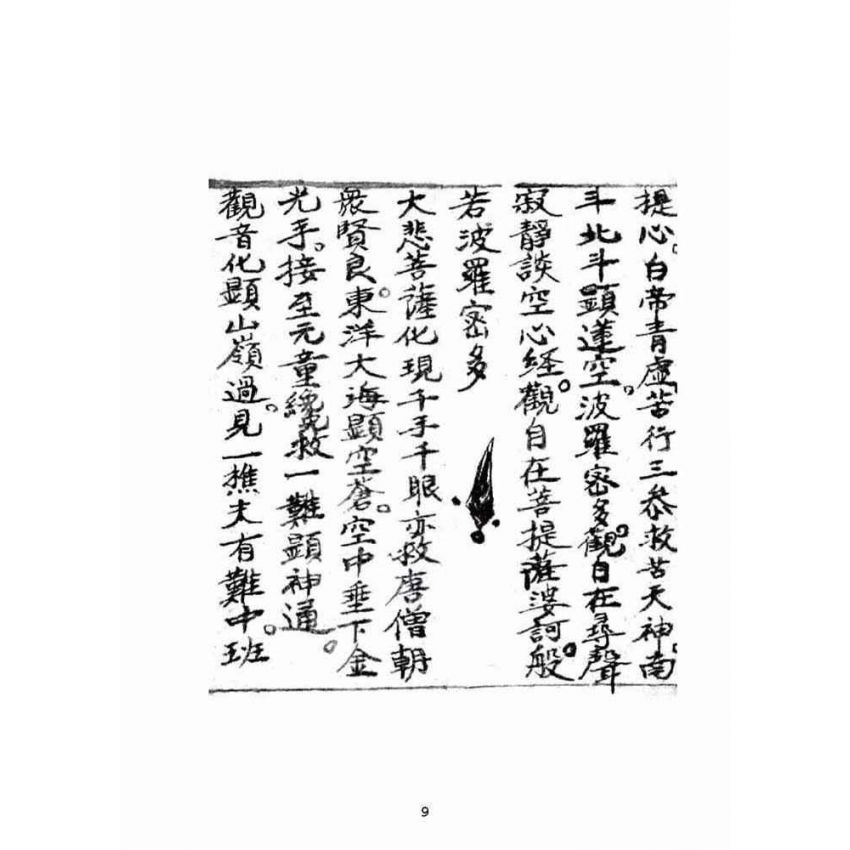 提心。白帝青虛。苦行三叅救苦天神。南
斗北斗顯蓮空。波羅密多。觀自在尋聲
寂靜談空心經。觀自在菩提薩婆訶。般
若波羅密多
大悲菩薩化現千手千眼亦救唐僧朝
眾賢良。東洋大海顯空蒼。空中垂下金
光手。接至元童纔救一難顯神通。
觀音化顯山嶺過。見一樵夫有難中。班
9